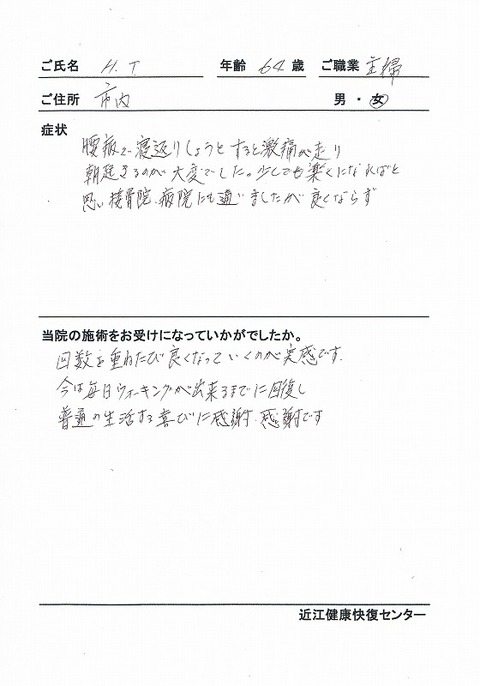 ご氏名 H.T 年齢 64 歳 ご職業 主婦
ご住所 市内 男・女
症状
腰痛で寝返りしょうとすると激痛が走り
朝起きるのが大変でした。少しでも楽くになればと
思い接骨院、病院にも通いましたが良くならず
当院の施術をお受けになっていかがでしたか。
回数を重ねたび良くなっていくのが実感です.
今は毎日ウォーキングが出来るまでに回復し
普通の生活する喜びに感謝.感謝です
近江健康快復センター